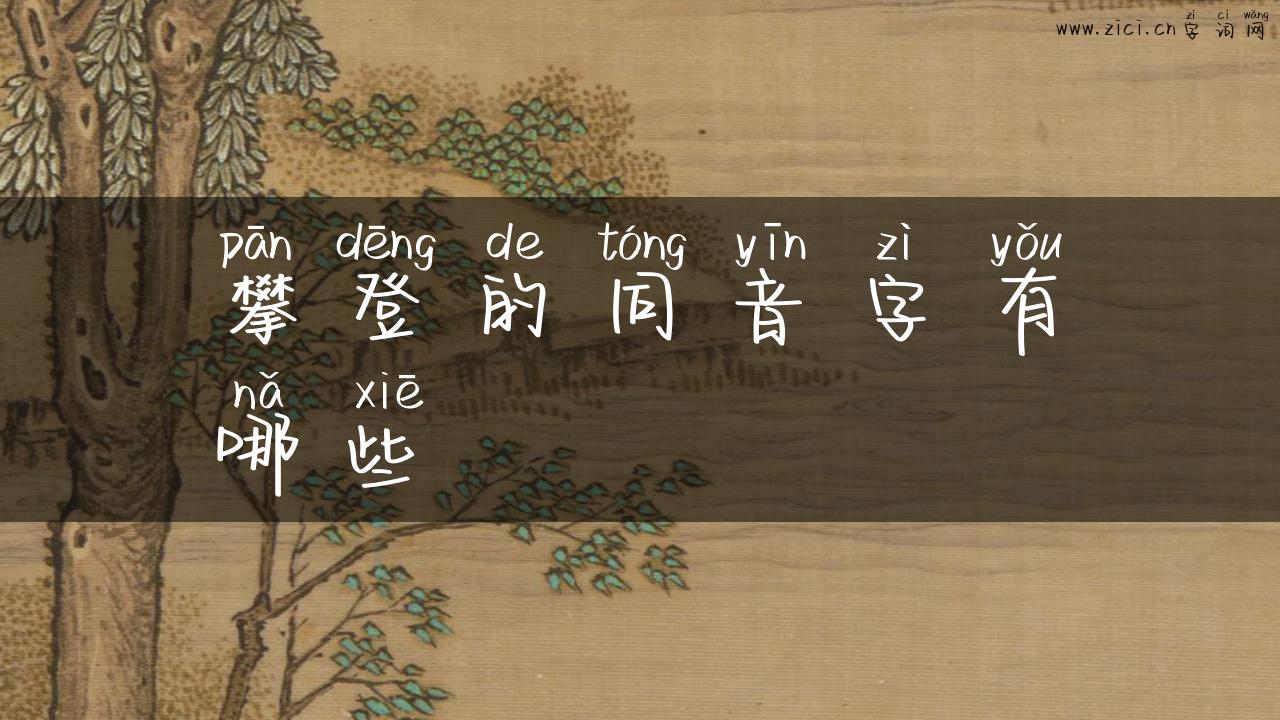 zì cí wǎng
www.zici.cn 字词网
pān dēng de tóng yīn zì yǒu
攀登的同音字有
nǎ xiē
哪些